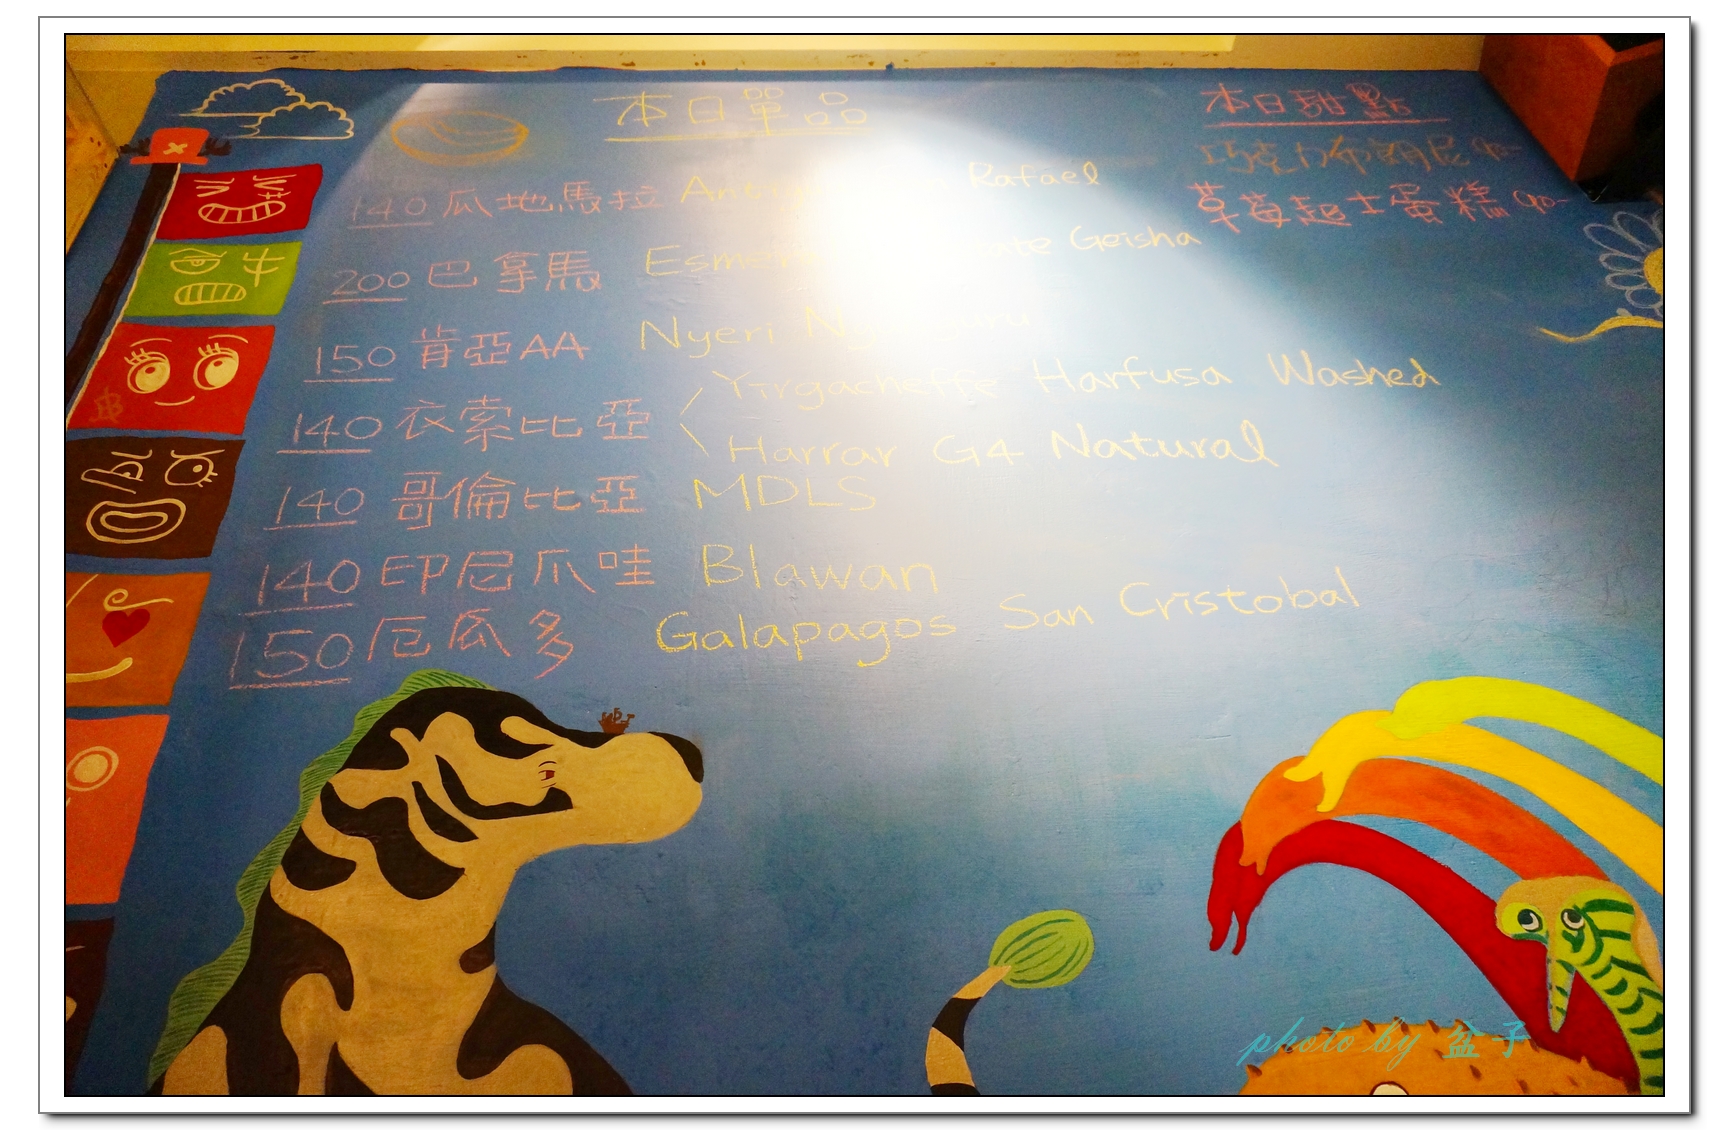 本日單品
140 瓜地馬拉 Rafael
200 巴拿馬 Geisha
150 肯亞AA Nyeri
140 衣索比亞 Yirgacheffe Harfusa Washed
Harrar G4 Natural
140 哥倫比亞 MDLS
140 印尼爪哇 Blawan
150 厄瓜多 Galapagos San Cristobal
本日甜點
巧克力布朗尼
草莓起士蛋糕 90-
photo by 盆子